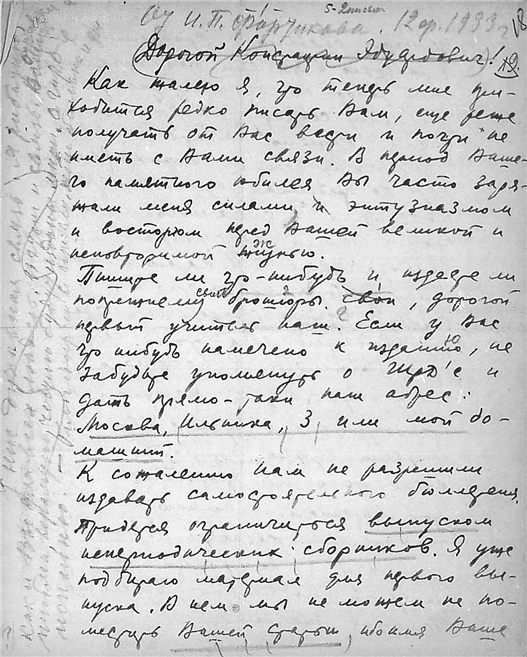 От И. П. Фортикова. 12 апр. 1933 г.
Дорогой Константин Эдуардович!
Как жалею я, что теперь мне при-
ходится редко писать Вам, еще реже
получать от Вас вести и почти не
иметь с Вами связи. В период Ваше-
го памятного юбилея Вы часто заря-
жали меня силами и энтузиазмом
и восторгом перед Вашей великой и
неповторимой жизнью.
Пишите ли что-нибудь и издаете ли
попрежнему свои брошюры, дорогой
первый учитель наш? Если у Вас
что нибудь намечено к изданию, не
забудьте упомянуть о ГИРД'е и
дать прямо-таки наш адрес:
Москва, Ильинка, 3, или мой до-
машний.
К сожалению нам не разрешили
издавать самостоятельного бюллетеня.
Придется ограничиться выпуском
непериодических сборников. Я уже
подбираю материал для первого вы-
пуска. В нем мы не можем не по-
местить Вашей статьи, ибо имя Ваше